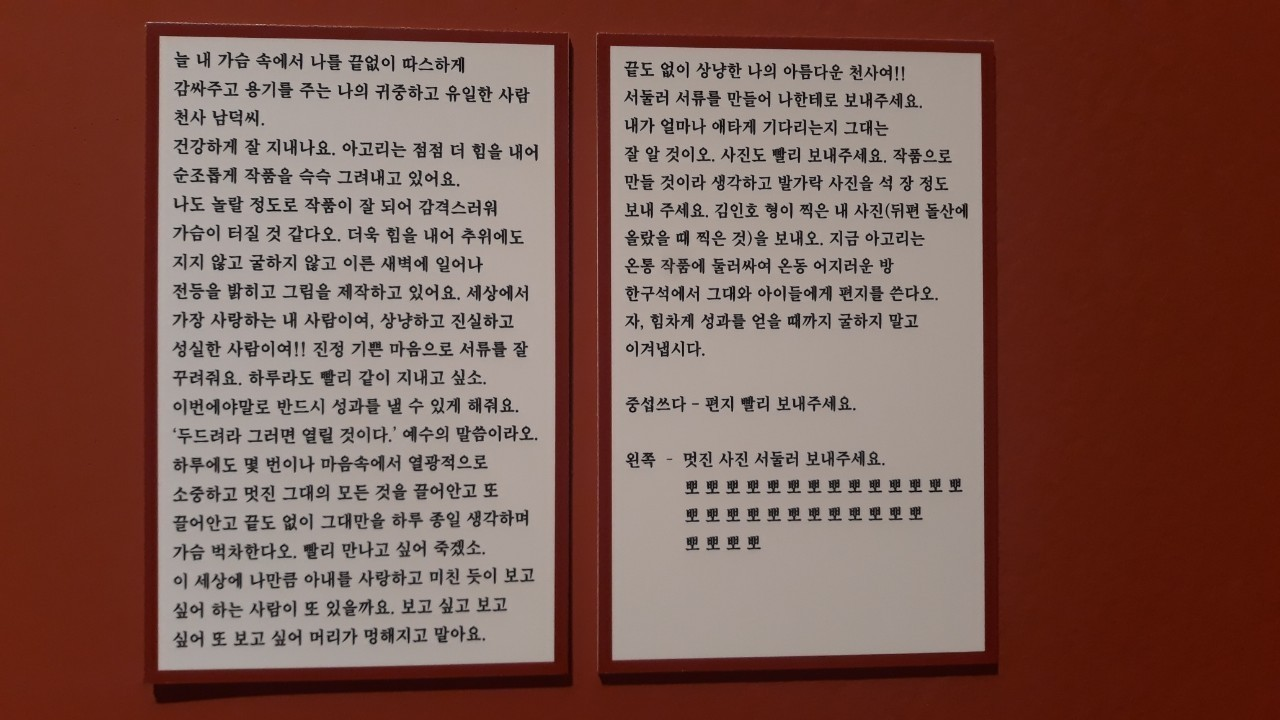 늘 내 가슴 속에서 나를 끝없이 따스하게
감싸주고 용기를 주는 나의 귀중하고 유일한 사람
천사 남덕씨.
건강하게 잘 지내나요. 아고리는 점점 더 힘을 내어
순조롭게 작품을 슥슥 그려내고 있어요.
나도 놀랄 정도로 작품이 잘 되어 감격스러워
가슴이 터질 것 같다오. 더욱 힘을 내어 추위에도
지지 않고 굴하지 않고 이른 새벽에 일어나
전등을 밝히고 그림을 제작하고 있어요. 세상에서
가장 사랑하는 내 사람이여, 상냥하고 진실하고
성실한 사람이여!! 진정 기쁜 마음으로 서류를 잘
꾸려줘요. 하루라도 빨리 같이 지내고 싶소.
이번에야말로 반드시 성과를 낼 수 있게 해줘요.
‘두드려라 그러면 열릴 것이다.’ 예수의 말씀이라오.
하루에도 몇 번이나 마음속에서 열광적으로
소중하고 멋진 그대의 모든 것을 끌어안고 또
끌어안고 끝도 없이 그대만을 하루 종일 생각하며
가슴 벅차한다오. 빨리 만나고 싶어 죽겠소.
이 세상에 나만큼 아내를 사랑하고 미친 듯이 보고
싶어 하는 사람이 또 있을까요. 보고 싶고 보고
싶어 또 보고 싶어 머리가 멍해지고 말아요.
끝도 없이 상냥한 나의 아름다운 천사여!!
서둘러 서류를 만들어 나한테로 보내주세요.
내가 얼마나 애타게 기다리는지 그대는
잘 알 것이오. 사진도 빨리 보내주세요. 작품으로
만들 것이라 생각하고 발가락 사진을 석 장 정도
보내 주세요. 김인호 형이 찍은 내 사진(뒤편 돌산에
올랐을 때 찍은 것)을 보내오. 지금 아고리는
온통 작품에 둘러싸여 온동 어지러운 방
한구석에서 그대와 아이들에게 편지를 쓴다오.
자, 힘차게 성과를 얻을 때까지 굴하지 말고
이겨냅시다.
중섭쓰다 - 편지 빨리 보내주세요.
왼쪽 - 멋진 사진 서둘러 보내주세요.
뽀 뽀 뽀 뽀 뽀 뽀 뽀 뽀 뽀 뽀 뽀 뽀 뽀 뽀
뽀 뽀 뽀 뽀 뽀 뽀 뽀 뽀 뽀 뽀 뽀 뽀
뽀 뽀 뽀 뽀